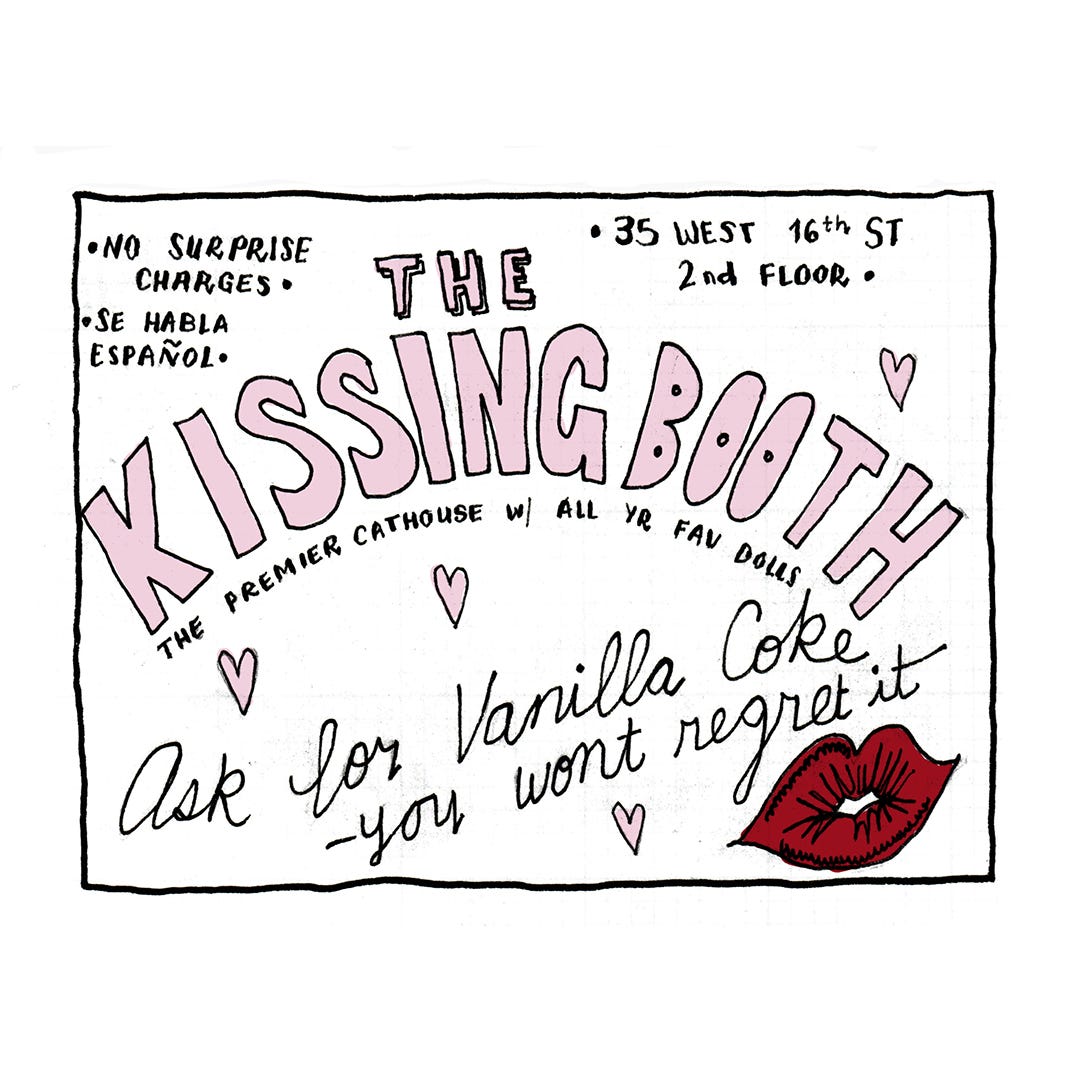 •NO SURPRISE
CHARGES•
•SE HABLA
ESPAÑOL•
• 35 WEST 16th ST
2nd FLOOR •
THE
KISSING BOOTH
THE PREMIER CATHOUSE W/ ALL YR FAV DOLLS
Ask for Vanilla Coke
-you wont regret it